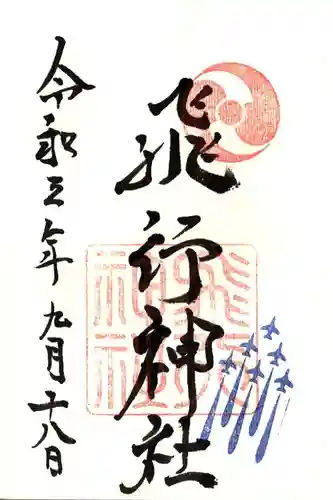 飛行神社
令和五年九月十八日
飛行神社